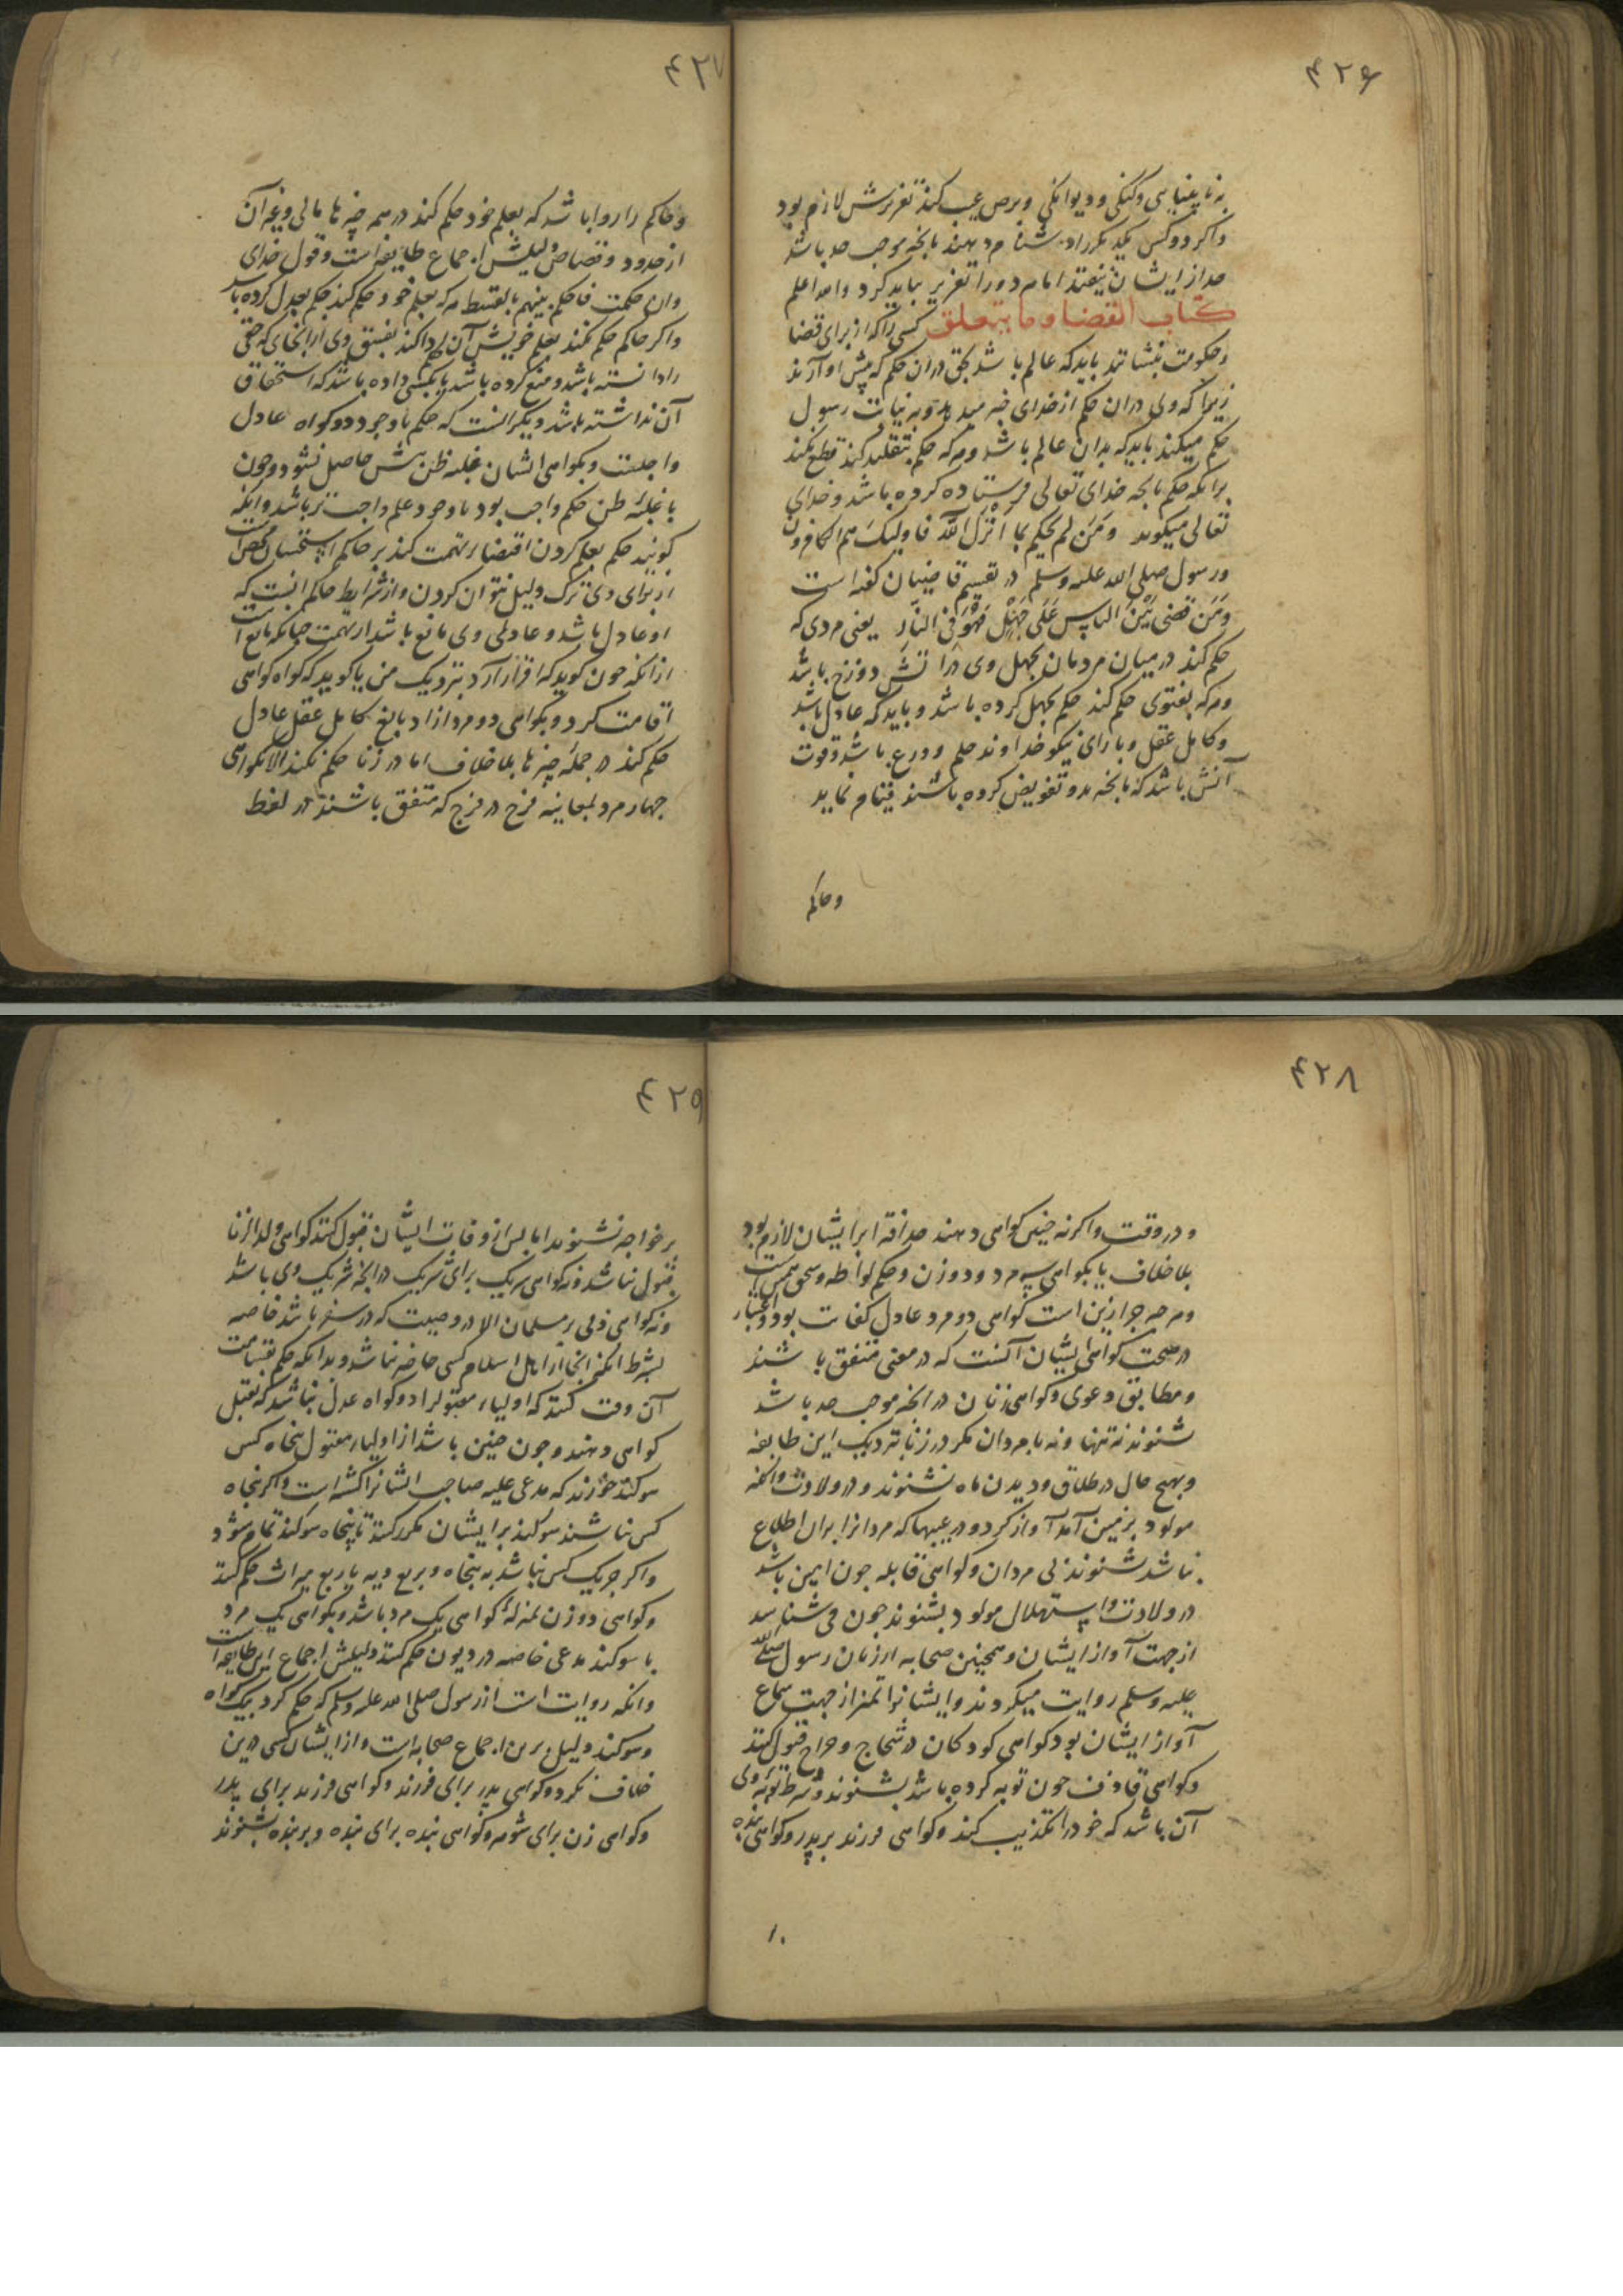 ۴۲۶
به نابینایی وکنکی ودیوانکی وبرص عیب کند تعزیرش لازم بود
واکر دوکس یکدیکررا دشنام دهند بانچه موجب حد باشد
حد از ایشان بیفتد اما هردورا تعزیر بباید کرد والله اعلم
کتاب القضا وما یتعلق کسی راکه از برای قضا
وحکومت بنشانند بایدکه عالم باشد بحق دران حکم که پیش او آرند
زیرا که ولی دران حکم از خدای خبر میدهد وبه نیابت رسول
حکم میکند بایدکه بدان عالم باشد وهرکه حکم بتقلید کند قطع نکند
برانکه حکم بانچه خدای تعالی فرستاده کرده باشد وخدای
تعالی میکوید ومن لم یحکم بما انزل الله فاولیک هم الکافرون
ورسول صلی الله علیه وسلم در تقسیم قاضیان کفته است
ومن قضی بین الناس علی جهل فهو فی النار یعنی مردی که
حکم کند در میان مردمان بجهل وی در اتش دوزخ باشد
وهرکه بفتوی حکم کند حکم بجهل کرده باشد وبایدکه عادل باشد
وکامل عقل وبا رای نیکو خداوند حلم وورع باشد وقوت
آنش باشد که بانچه بدو تفویض کرده باشند قیام نماید
وحاکم
۴۲۷
وحاکم را روا باشد که بعلم خود حکم کند در همه چیزها مالی وغیر آن
از حدود وقصاص ودلیلش اجماع طایفه است وقول خدای
وان حکمت فاحکم بینهم بالقسط هرکه بعلم خود حکم کند حکم بعدل کرده باشد
واکر حاکم حکم نکند بعلم خویش آن ادا کند بفسق وی از انجای که حقی
را دانسته باشد ومنع کرده باشد یا بکسی داده باشد که استحقاق
آن نداشته باشد ودیکر انست که حکم با وجود دوکواه عادل
واجبست وبکواهی ایشان غلبه ظن بیش حاصل نشود وچون
با غلبهٔ ظن حکم واجب بود با وجود علم واجب تر باشد وانکه
کویند حکم بعلم کردن اقتضاء تهمت کند بر حاکم استحسان محض است
از برای وی ترک دلیل نتوان کردن واز شرایط حاکم انست که
او عادل باشد وعادلی وی مانع باشد از تهمت چنانکه مانع است
ازانکه چون کوید که اقرار آرد بنزدیک من یا کوید که کواه کواهی
اقامت کرد وبکواهی دو مرد ازاد بالغ کامل عقل عادل
حکم کند در جمله چیزها بلا خلاف اما در زنا حکم نکند الا بکواهی
چهار مرد بمعاینه فرج در فرج که متفق باشند در لفظ
۴۲۸
ودر وقت واکر نه چنین کواهی دهند حد افترا بر ایشان لازم بود
بلا خلاف یا بکواهی سه مرد ودو زن وحکم لواطه وسحق همین است
وهرچه جز ازین است کواهی دو مرد عادل کفایت بود واعتبار
در صحت کواهی ایشان آنست که در معنی متفق باشند
ومطابق دعوی وکواهی زنان در انچه موجب حد باشد
نشنوند نه تنها ونه با مردان مکر در زنا نزدیک این طایفه
وبهیچ حال در طلاق ودیدن ماه نشنوند ودر ولادت وانکه
مولود بزمین آمد آواز کرد ودر عیبها که مردانرا بران اطلاع
نباشد بشنوند بی مردان وکواهی قابله چون امین باشد
در ولادت واستهلال مولود بشنوند چون می شناسد
از جهت آواز ایشان وهمچنین صحابه از زنان رسول صلی الله
علیه وسلم روایت میکردند وایشانرا تمیز از جهت سماع
آواز ایشان بود کواهی کودکان در شجاج وجراح قبول کنند
وکواهی قاذف چون توبه کرده باشد بشنوند وشرط توبه وی
آن باشد که خودرا تکذیب کند وکواهی فرزند بر پدر وکواهی بنده
بر
۴۲۹
بر خواجه نشنوند اما پس از وفات ایشان قبول کنند کواهی ولد الزنا
قبول نباشد ونه کواهی شریک برای شریک در انچه شریک وی باشد
ونه کواهی ذمی بر مسلمان الا در وصیت که در سفر باشد خاصه
بشرط انکه انجا از اهل اسلام کسی حاضر نباشد وبدانکه حکم بقسامت
آن وقت کنند که اولیاء مقتول را دوکواه عدل نباشد که بقتل
کواهی دهند وچون چنین باشد از اولیاء مقتول پنجاه کس
سوکند خورند که مدعی علیه صاحب ایشانرا کشته است واکر پنجاه
کس نباشند سوکند بر ایشان مکرر کنند تا پنجاه سوکند تمام شود
واکر جز یک کس نباشد به پنجاه وبربع ودیه یا ربع میراث حکم کنند
وکواهی دو زن بمنزلهٔ کواهی یک مرد باشد وبکواهی یک مرد
با سوکند مدعی خاصه در دیون حکم کنند ودلیلش اجماع این طایفه است
وانکه روایت است از رسول صلی الله علیه وسلم که حکم کرد بیک کواه
وسوکند ودلیل برین اجماع صحابه است واز ایشان کسی درین
خلاف نکرد وکواهی پدر برای فرزند وکواهی فرزند برای پدر
وکواهی زن برای شوهر وکواهی بنده برای بنده وبر بنده بشنوند